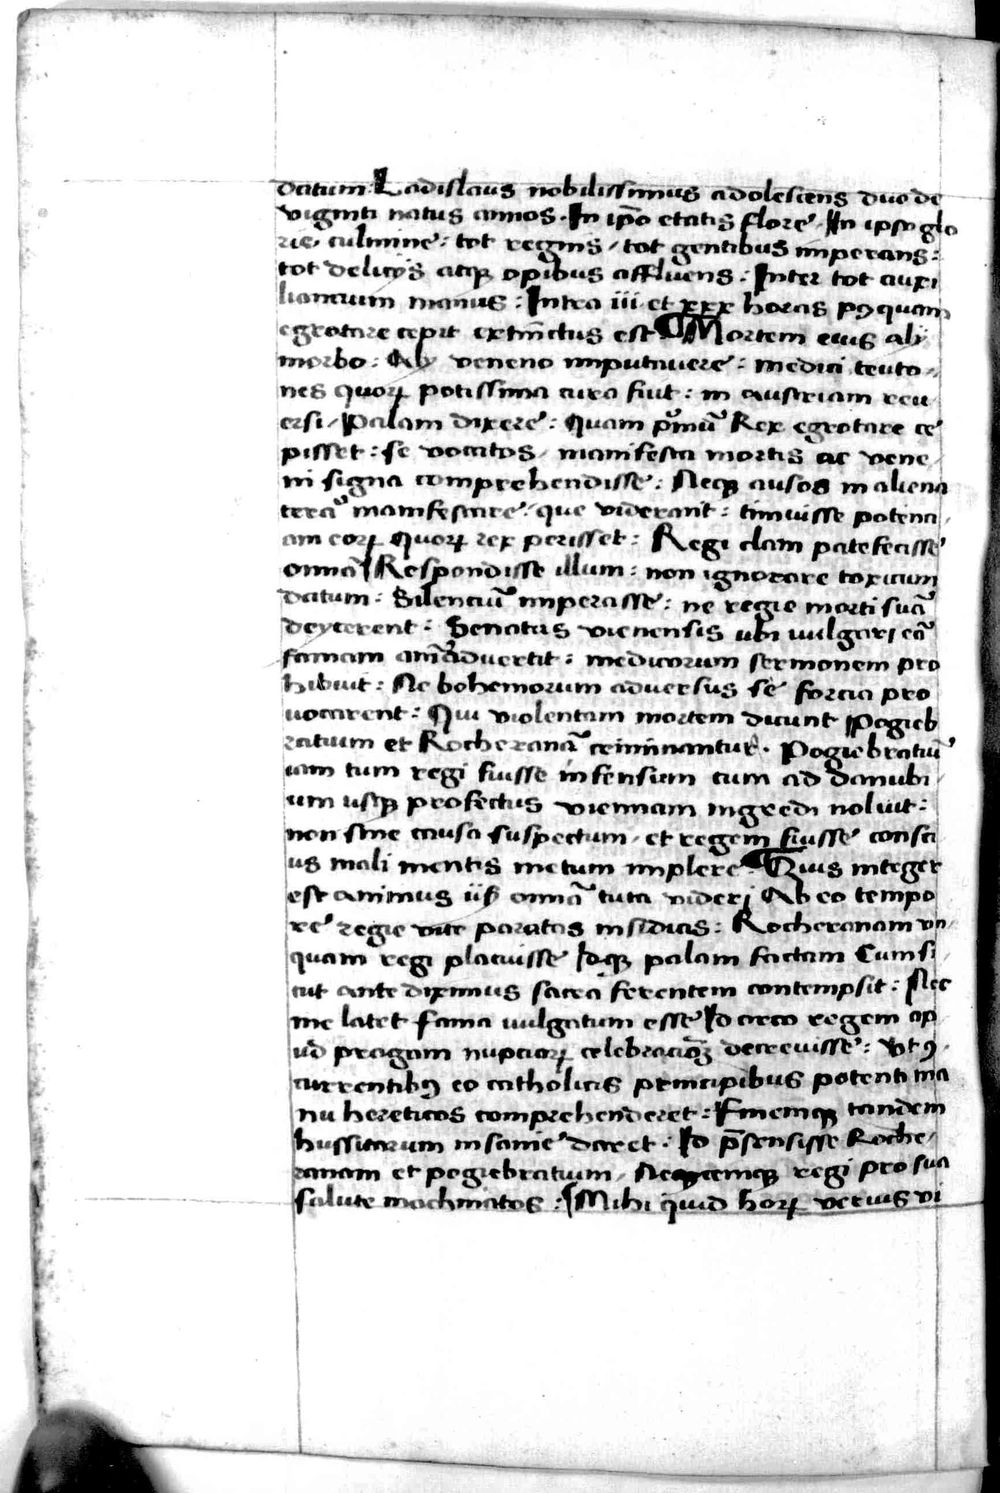 datum: Ladislaus nobilissimus adolesiens duo de
viginti natus annos. In ip̄o etatis flore. In ipso glo
rie, culmine: tot regnis, tot gentibus imperans:
tot delicijs atqꝫ opibus affluens: Inter tot auxi
liantium manus: Intra iii et xxx horas pꝯquam
egrotare cepit extinctus est ¶ Mortem eius alij
morbo: Alij veneno imputavere: medici teuto-
nes quoꝝ potissima cura fiut: in austriam reu
ersi, Palam dixere: Quam p̄mū Rex egrotare ce
pisset: se vocatos, manifesta mortis ac vene-
ni signa comprehendisse: Neqꝫ ausos in aliena
terā manifestare, que viderant: timuisse potenci-
am eoꝝ quoꝝ rex perisset: Regi clam patefecisse
omīa Respondisse illum: non ignorare toxicum
datum: Silenciū imperasse: ne regie morti suā
deycerent: Senatus vienensis ubi uulgari eā
famam anīadvertit: medicorum sermonem pro
hibuit: Ne bohemorum adversus se forcia pro
uocarent: Qui violentam mortem dicunt Pogieb
ratium et Rocheranā criminantur. Pogiebratiū
iam tum regi fuisse infensum cum ad danubi-
um usqꝫ profectus viennam ingredi noluit:
non sine causa suspectum, et regem fuisse consci
us mali mentis metum implere. ¶ Quis integer
est animus iis omīa tuta videri Ab eo tempo
re regie vite paratas insidias: Rocheranam vn-
quam regi placuisse Idqꝫ palam factam Cum si
cut ante diximus sacra ferentem contempsit: Nec
me latet fama uulgatum esse Id circo regem ap
ud pragam nupciaꝝ celebracioꝫ decrevisse: Vt ꝯ-
currentibꝯ eo catholicis principibus potenti ma
nu hereticos comprehenderet: Finemqꝫ tandem
hussitarum insanie daret: Id p̄sensisse Roche-
ranam et pogiebratium, Necemqꝫ regi pro sua
salute machinatos: ¶ Mihi quid hoꝝ verius vi